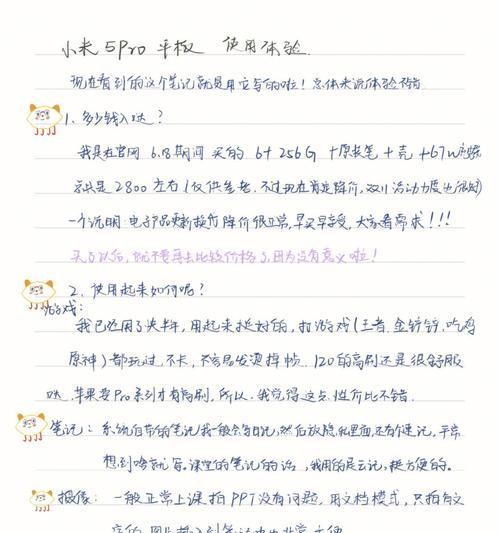 小米5Pro 平板 使用体验
现在看到的这个笔记就是用它写的啦！总体来说体验不错
1、多少钱入哒？
我是在官网 6.18期间 买的 6+256G +原装笔 +壳 +67w
总共是2800左右（仅供参考.不过现在肯定降价，双11活动力度也
一个说明 电子产品更新换代 降价很正常，早买早享受，大家看需求！！！
买了以后，就不要再去比较价格了，因为没有意义啦！
2、使用起来如何呢？
游戏：
我已经用了快半年，用起来挺好的，打游戏（王者.金铲铲.吃鸡
原神）都玩过，不卡，不容易发烫掉帧.120的高刷还是很舒服
哒.苹果要Pro系列才有高刷，所以.我觉得这点.性价比不错.
笔记：系统自带的笔记我一般会写日记，然后放隐私里面，还有个速记，平常
想到啥就写.课堂的笔记的话，我用的是云记，挺方便的.
摄像：一般正常上课拍PPT没有问题，用文档模式，只拍有文
字的.图片插入到笔记中也非常方便.